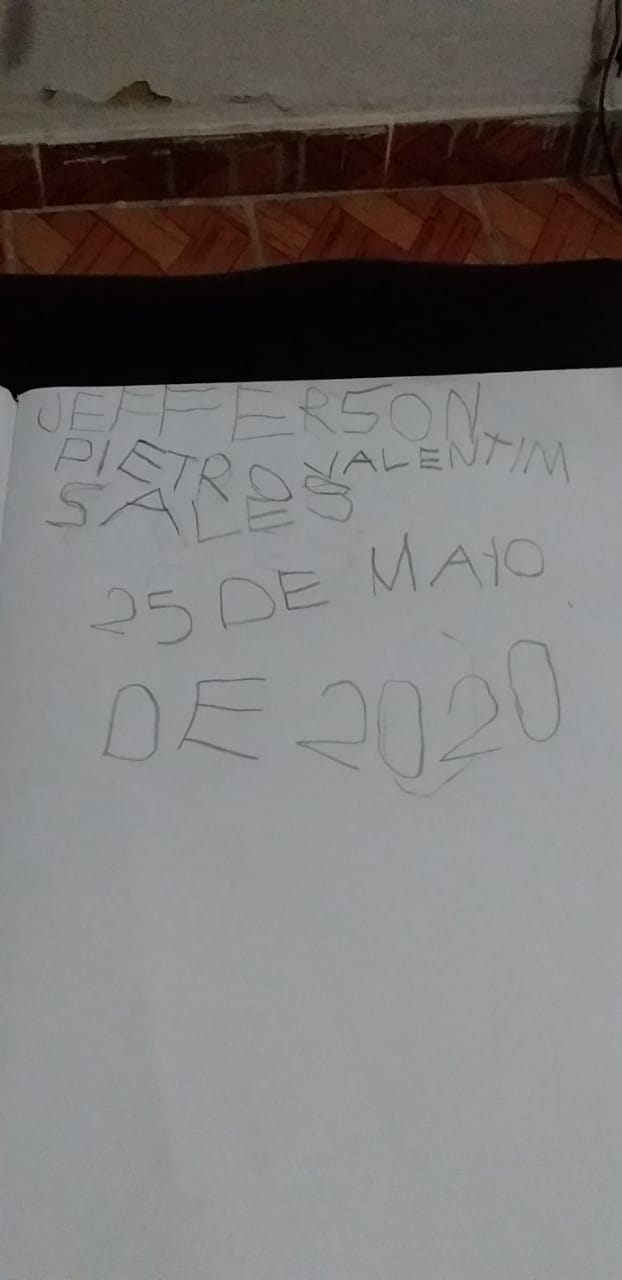 JEFFERSON
PIETRO VALENTIM
SALES
25 DE MAIO
DE 2020